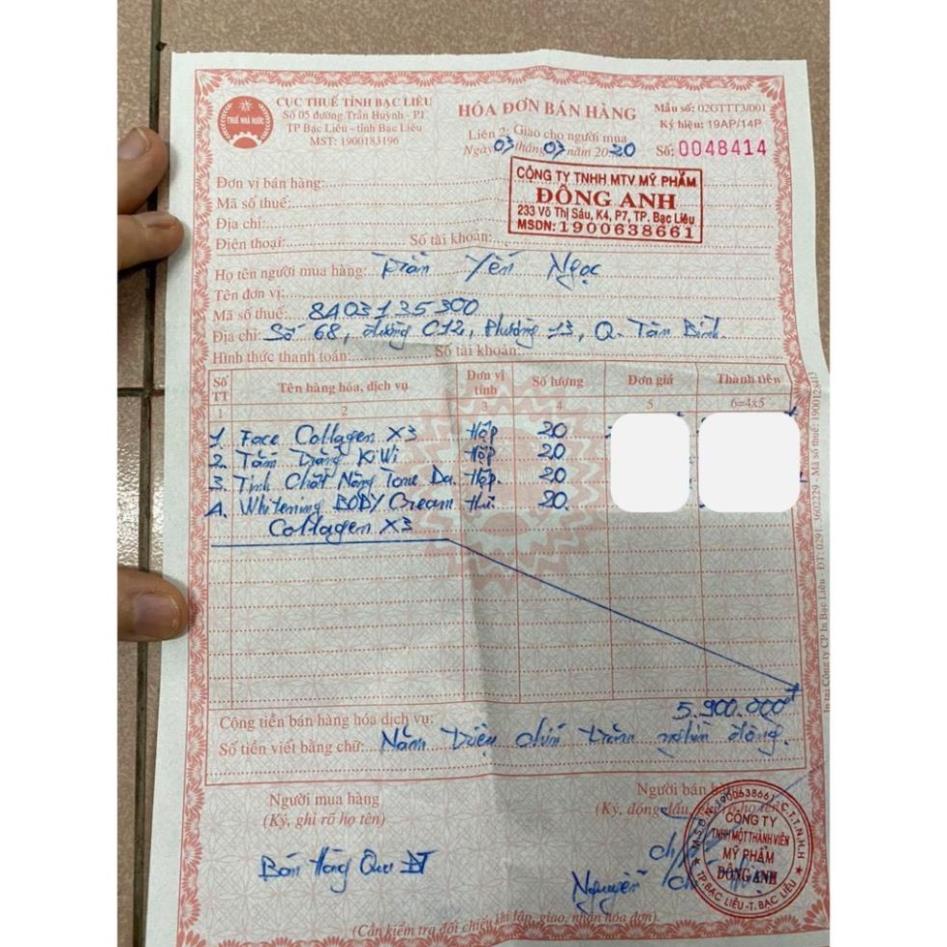 CỤC THUẾ TỈNH BẠC LIÊU
Số 05 đường Trần Huỳnh - P1
TP Bạc Liêu - tỉnh Bạc Liêu
MST: 1900183196
THUẾ NHÀ NƯỚC
HÓA ĐƠN BÁN HÀNG
Liên 2: Giao cho người mua
Ngày 03 tháng 03 năm 2020
Mẫu số: 02GTTT3/001
Ký hiệu: 19AP/14P
Số: 0048414
CÔNG TY TNHH MTV MỸ PHẨM
ĐÔNG ANH
233 Võ Thị Sáu, K4, P7, TP. Bạc Liêu
MSDN: 1900638661
Đơn vị bán hàng:
Mã số thuế:
Địa chỉ:
Điện thoại: Số tài khoản:
Họ tên người mua hàng: Trần Yến Ngọc
Tên đơn vị:
Mã số thuế: 8403135300
Địa chỉ: Số 68, đường C12, Phường 13, Q. Tân Bình.
Hình thức thanh toán: Số tài khoản:
Số TT Tên hàng hóa, dịch vụ Đơn vị tính Số lượng Đơn giá Thành tiền
1 2 3 4 5 6=4x5
1. Face Collagen X3 Hộp 20
2. Tắm Trắng KiWi Hộp 20
3. Tinh Chất Nâng Tone Da. Hộp. 20
4. Whitening BODY Cream 20.
Collagen X3
Cộng tiền bán hàng hóa dịch vụ: 5.900.000
Số tiền viết bằng chữ: Năm Triệu chín trăm nghìn đồng.
Người mua hàng
(Ký, ghi rõ họ tên)
Bán Hàng Qua ĐT
Người bán
(Ký, đóng dấu, họ tên)
Nguyễn
M.S.D.N: 1900638661 - C.T.T.N.H.H
CÔNG TY
TNHH MỘT THÀNH VIÊN
MỸ PHẨM
ĐÔNG ANH
TP.BẠC LIÊU-T. BẠC LIÊU
(Cần kiểm tra đối chiếu khi lập, giao, nhận hóa đơn)